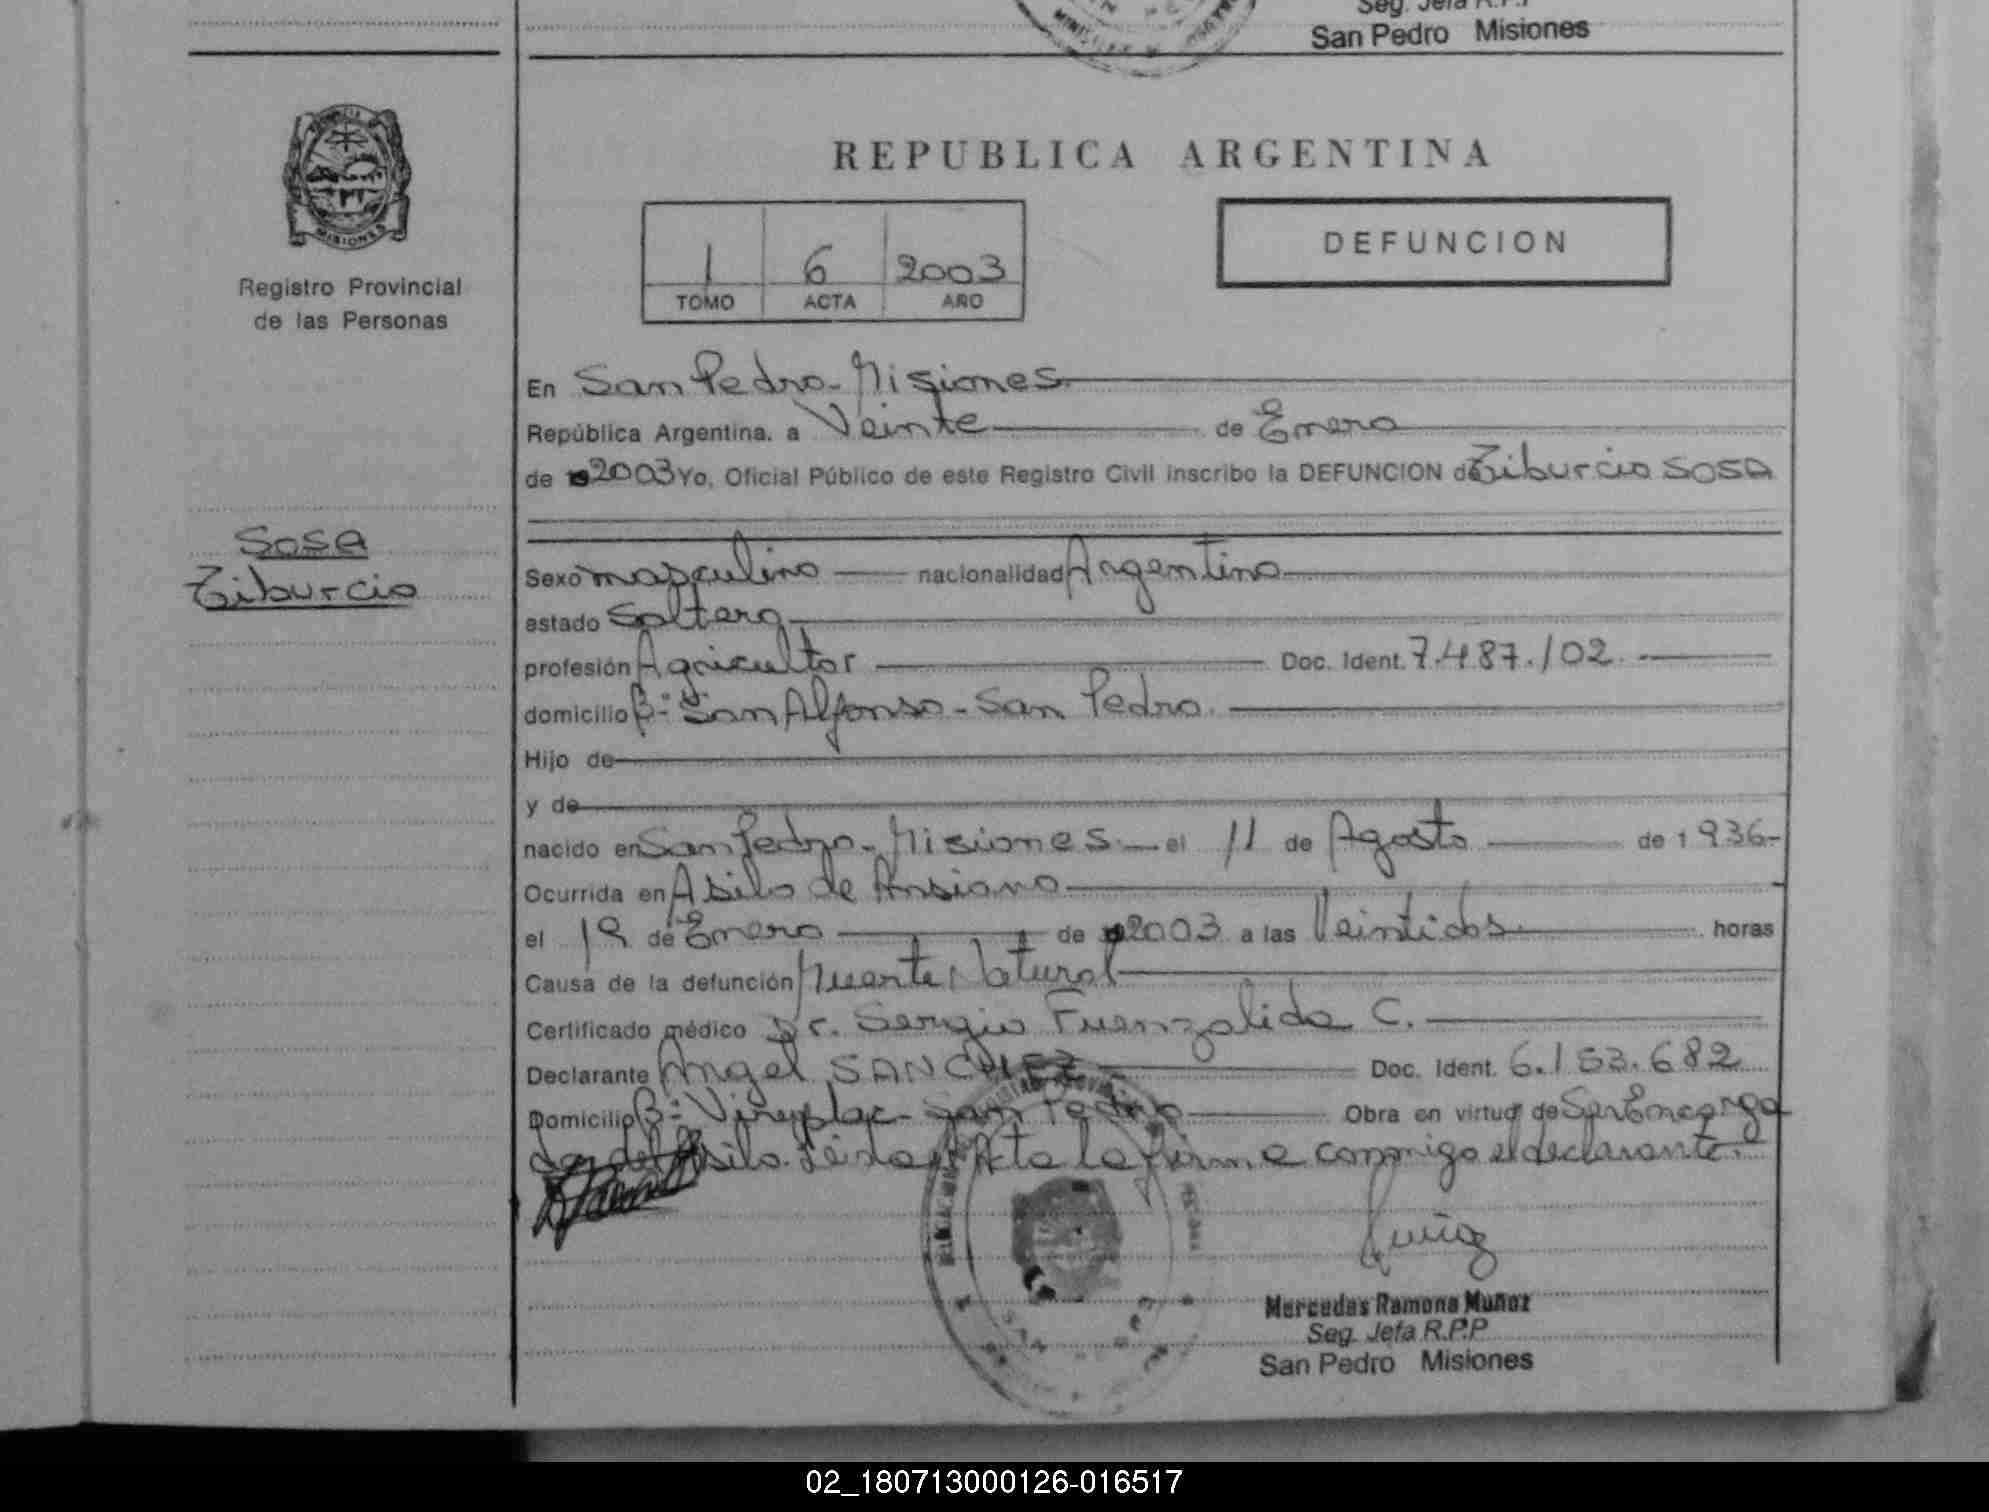 Seg. Jefa R.P.P
San Pedro Misiones
MISIONES
Registro Provincial
de las Personas
REPUBLICA ARGENTINA
1 6 2003
TOMO ACTA AÑO
DEFUNCION
En San Pedro - Misiones
República Argentina, a Veinte de Enero
de 2003 Yo, Oficial Público de este Registro Civil inscribo la DEFUNCION de Tiburcio SOSA
Sosa
Tiburcio
Sexo masculino nacionalidad Argentina
estado Soltero
profesión Agricultor Doc. Ident. 7.487.102
domicilio Bº San Alfonso - San Pedro.
Hijo de
y de
nacido en San Pedro - Misiones. el 11 de Agosto de 1936-
Ocurrida en Asilo de Ansiano
el 19 de Enero de 2003 a las Veintidos horas
Causa de la defunción Muerte Natural
Certificado médico Dr. Sergio Fuenzalida C.
Declarante Angel SANCHEZ Doc. Ident. 6.153.682
Domicilio Bº San Pedro Obra en virtud de Ser Encarga
do del Asilo. Leida el Acta la firma conmigo el declarante.
Mercedes Ramona Muñoz
Seg. Jefa R.P.P
San Pedro Misiones
02_180713000126-016517